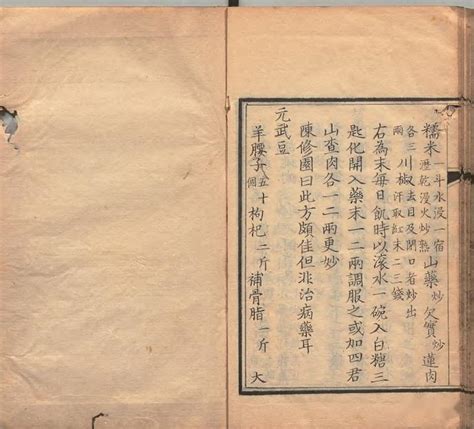 糯米一斗水浸一宿瀝乾漫火炒熟山藥炒欠實炒蓮肉
各三兩川椒去目及閉口者炒出汗取紅末二三錢
右為末每日飢時以滾水一碗入白糖三
匙化開入藥末一二兩調服之或加四君
山查肉各一二兩更妙
陳修園曰此方頗佳但非治病藥耳
元武豆
羊腰子五十個枸杞二斤補骨脂一斤大